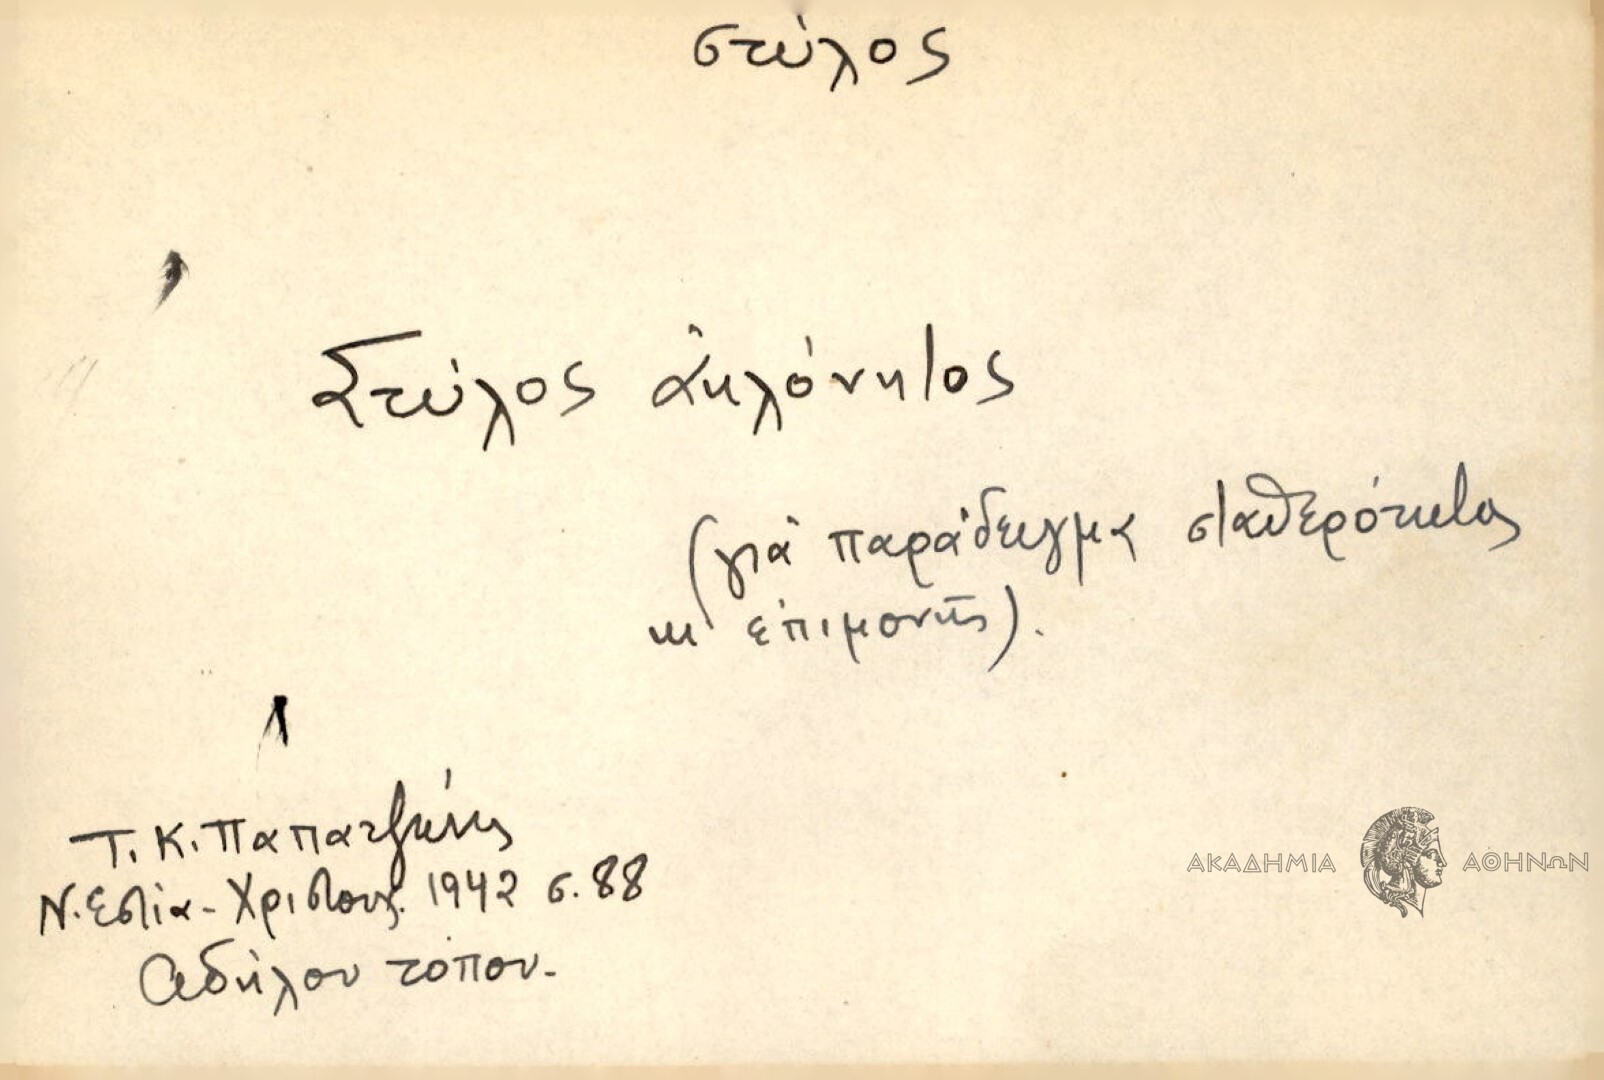 στύλος
Στύλος ἀκλόνητος
(γιὰ παράδειγμα σταθερότητας
κι' ἐπιμονῆς).
Τ. Κ. Παπατζώνης
Ν. Εστία - Χριστουγ. 1942 σ. 88
Αδήλου τόπου.
ΑΚΑΔΗΜΙΑ ΑΘΗΝΩΝ